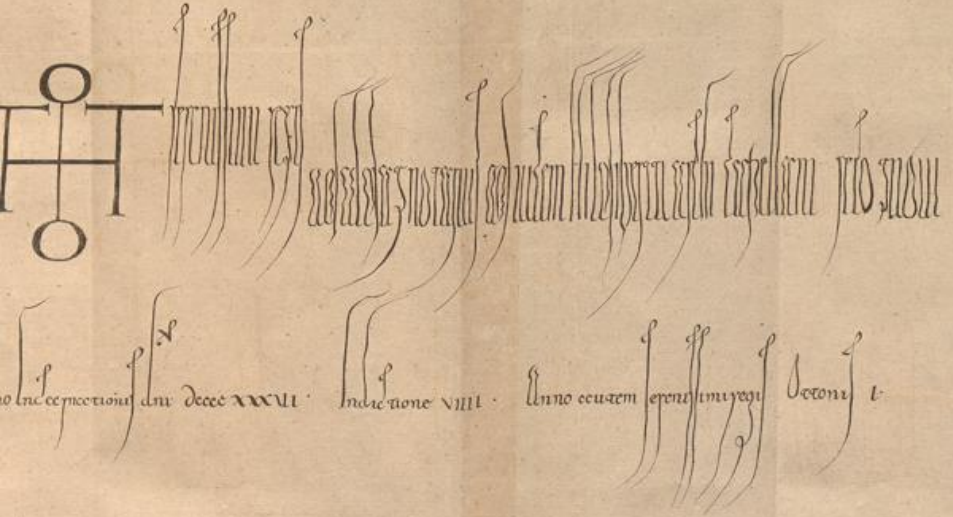 serenissimi regis
adaldagus notarius aduicem hildiberhti archicappellani recognoui
Incarnationis dni dcccc xxxvi · Indictione viiii · Anno autem serenissimi regis Ottonis i·